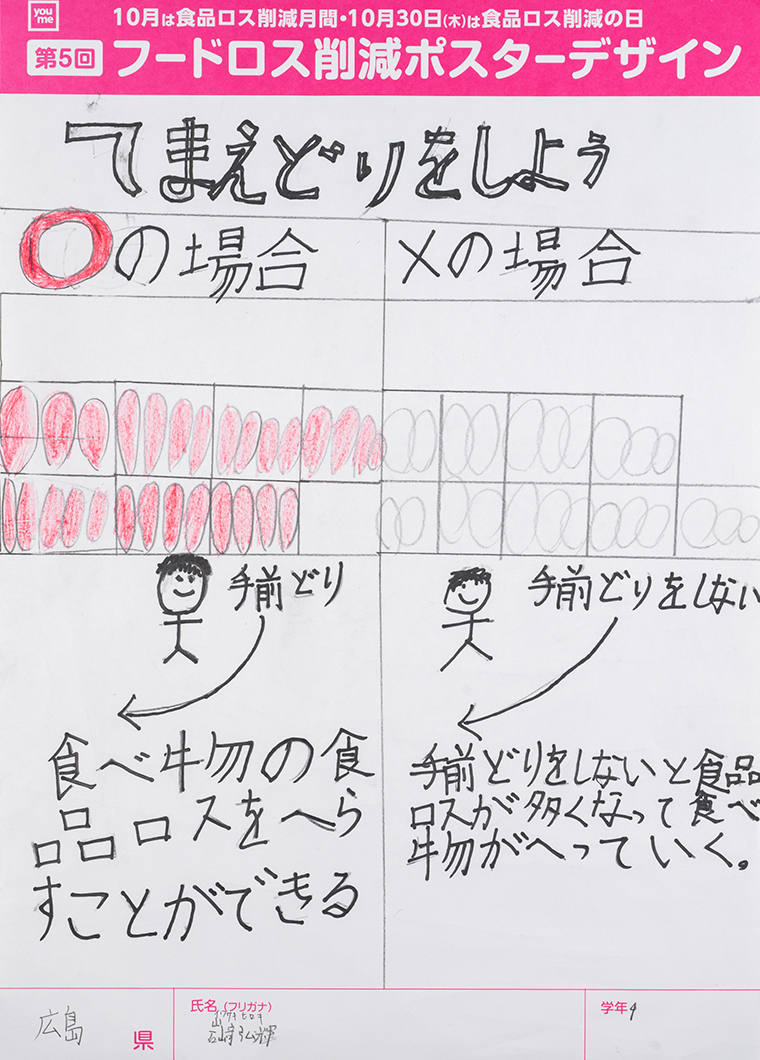 you me
10月は食品ロス削減月間・10月30日(木)は食品ロス削減の日
第5回 フードロス削減ポスターデザイン
てまえどりをしよう
〇の場合
×の場合
手前どり
食べ物の食
品ロスをへら
すことができる
手前どりをしない
手前どりをしないと食品
ロスが多くなって食べ
物がへっていく。
広島 県
氏名(フリガナ)
学年4